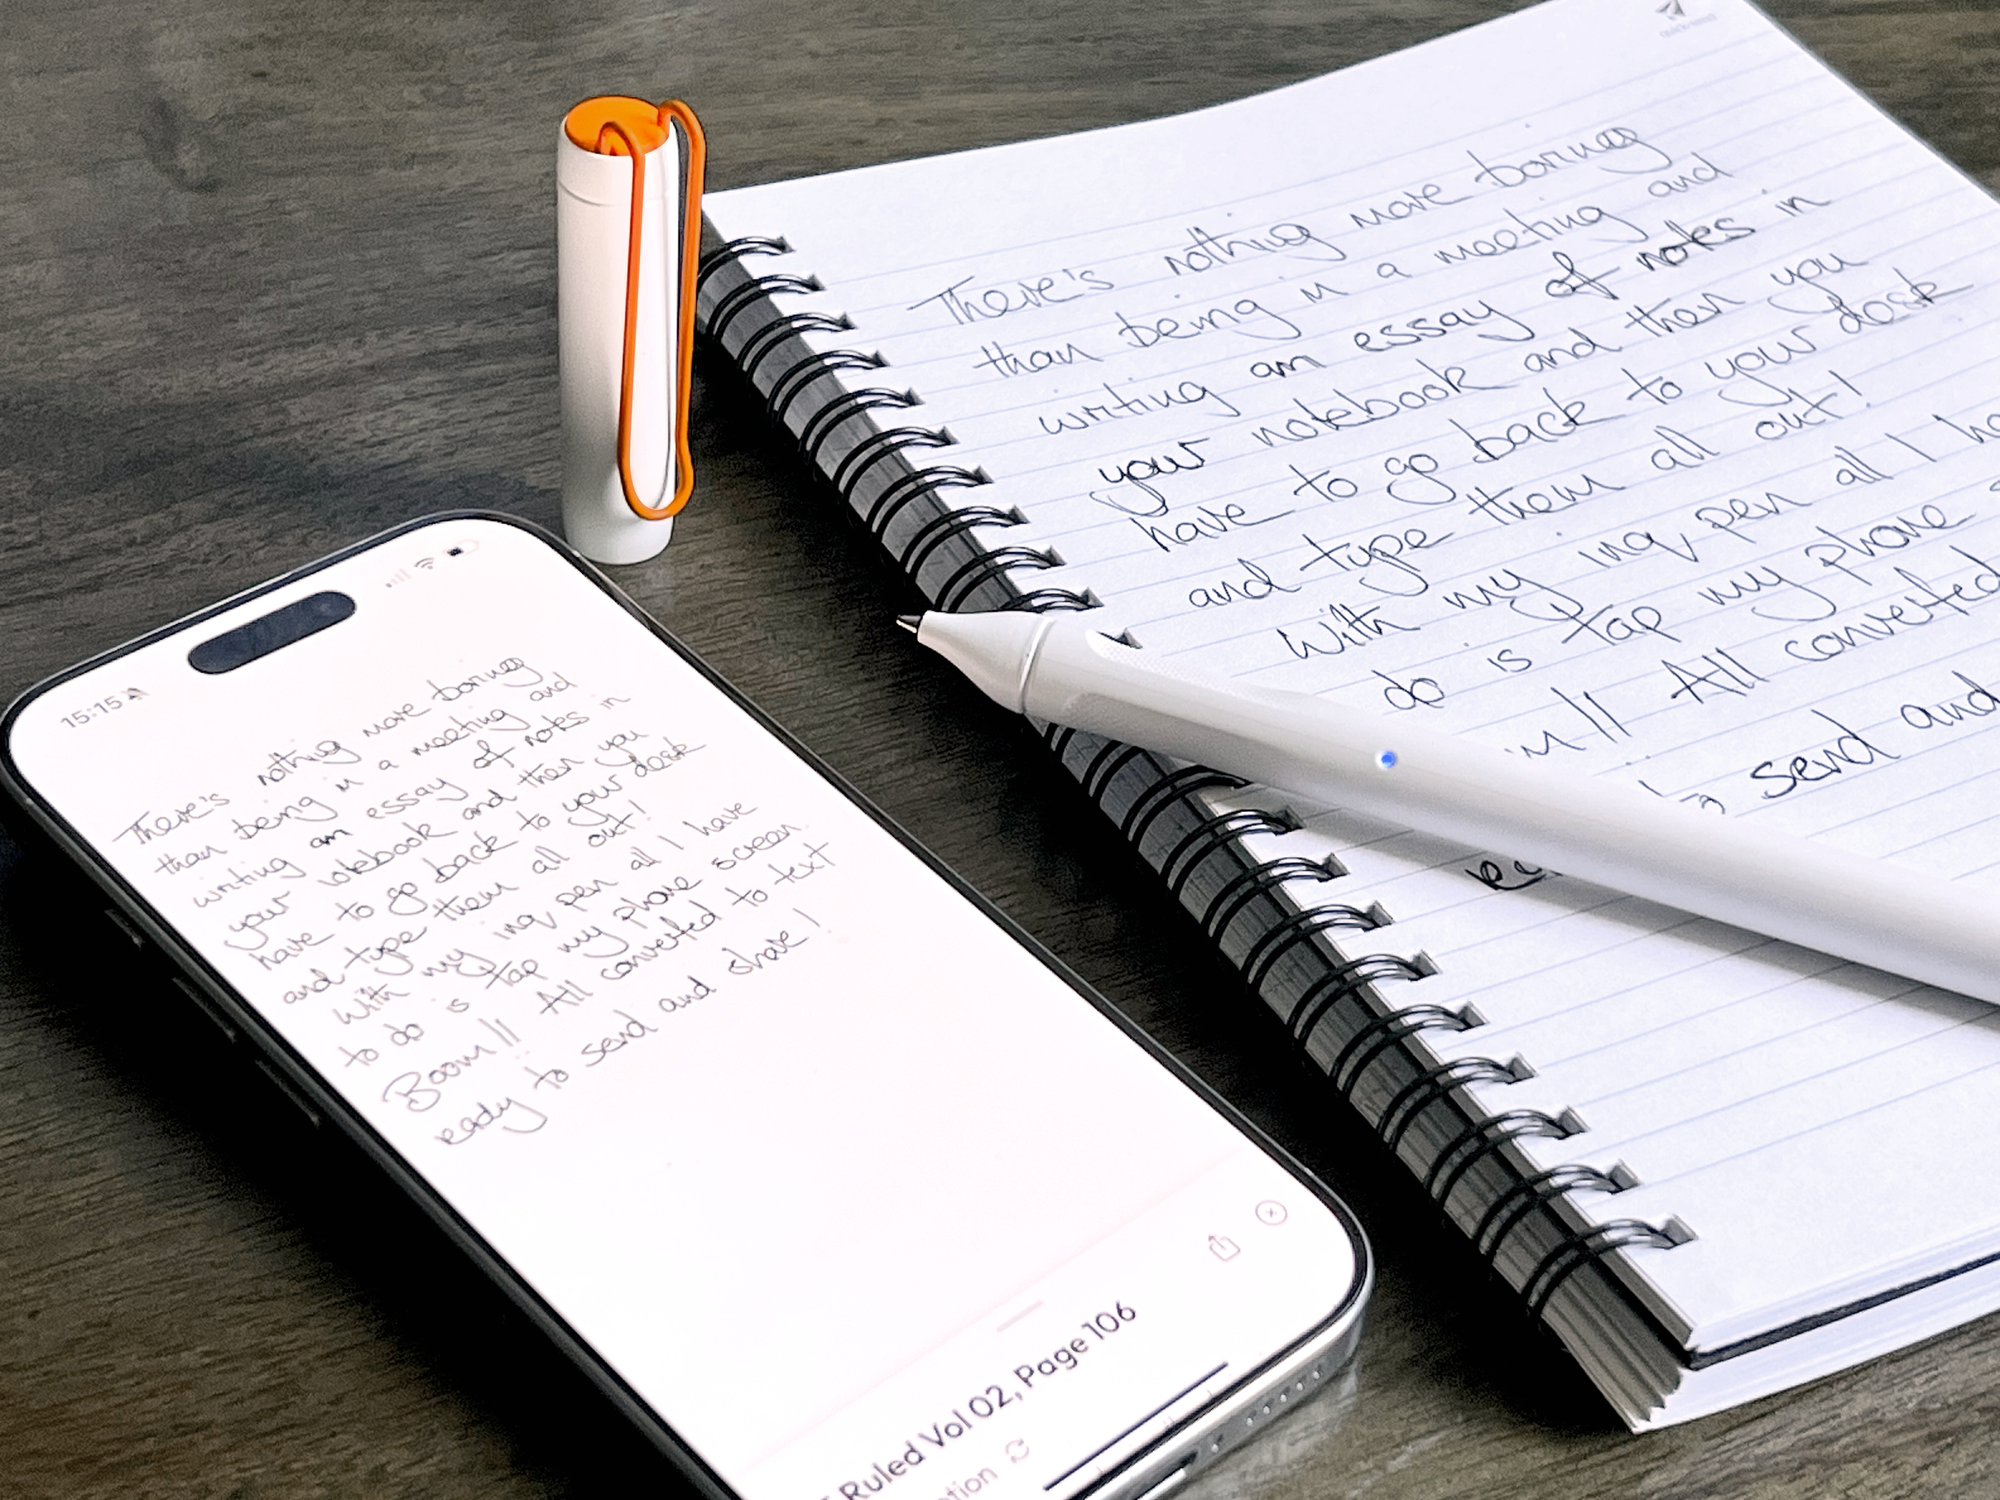 15:15
There's nothing more boring
than being in a meeting and
writing an essay of notes in
your notebook and then you
have to go back to your desk
and type them all out!
With my inq pen all I have
to do is tap my phone screen
Boom!! All converted to text
ready to send and share!
Ruled Vol 02, Page 106
There's nothing more boring
than being in a meeting and
writing an essay of notes in
your notebook and then you
have to go back to your desk
and type them all out!
With my inq pen all I
do is tap my phone
All converted
send and